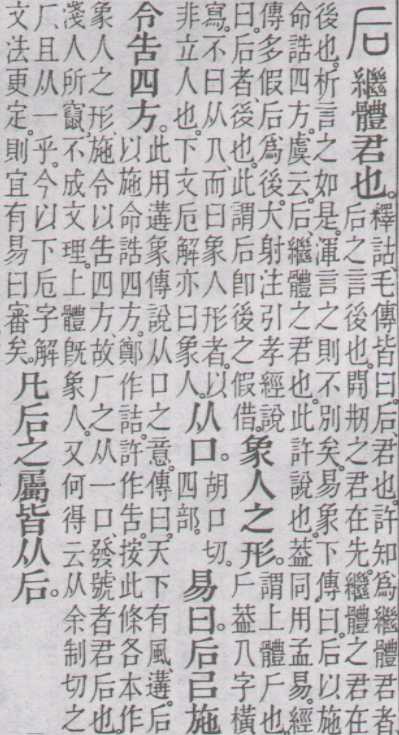 后 繼體君也。釋詁、毛傳皆曰。后、君也。許知爲繼體君者、
后之言後也。開刱之君在先。繼體之君在
後也。析言之如是。渾言之則不別矣。易象下傳曰。后以施
命誥四方。虞云。后、繼體之君也。此許說也。葢同用孟易。經
傳多假后爲後。大射注引孝經說
曰。后者、後也。此謂后卽後之假借。
象人之形。謂上體𠂆也。
𠂆葢入字橫
寫。不曰从入而曰象人形者。以
非立人也。下文卮解亦曰象人。
从口。胡口切。
四部。
易曰。后㠯施
令告四方。此用遘象傳說从口之意。傳曰。天下有風。遘。后
以施命誥四方。鄭作詰。許作告。按此條各本作
象人之形。施令以告四方。故𠂆之从一口。發號者君后也。
淺人所竄。不成文理。上體旣象人。又何得云从余制切之
𠂆、且从一乎。今以下卮字解
文法更定。則宜有易曰審矣。
凡后之屬皆从后。